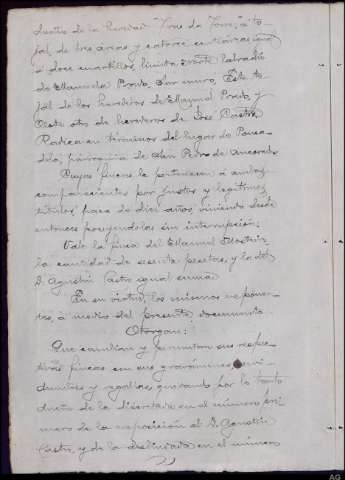 dueño de la heredad "Tras da Torre", a to-
jal, de tres areas y catorce centiareas
ó doce cuartillos, linita Norte labradío
de Manuela Prado, Sur muro, Este to-
jal de los herederos de Manuel Prado, y
Oeste otro de herederos de José Castro.
Radica en términos del lugar do Pousa-
delo, parroquia de San Pedro de Ancorados.
Cuyas fincas le pertenecen á ambos
comparecientes por justos y legítimos
titulos, hace de diez años, viniendo desde
entonces poseyendolas sin interrupción;
Vale la finca del Manuel
la cantidad de sesenta pesetas, y la del
D. Agustin Castro igual suma.
En su virtud, los mismos exponen-
tes, a medio del presente documento.
Otorgan:
Que cambian y permutan sus respec-
tivas fincas sin gravámenes
y regalias, quedando por lo tanto
dueño de la discretada en el número pri-
mero de la exposición el D. Agustin
Castro, y de la deslindada en el número